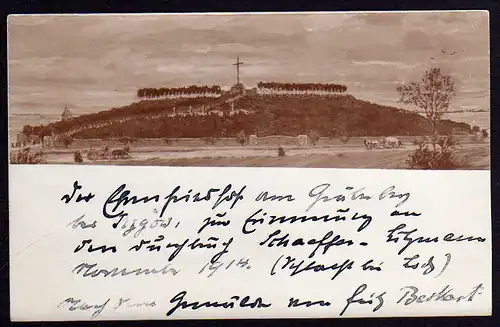 Der Ehrenfriedhof am Gräberberg
bei Rzgów, zur Erinnerung an
den Durchbruch Schaeffer - Litzmann
November 1914. (Schlacht bei Lodz)
Nach dem Gemälde von Fritz Beckert